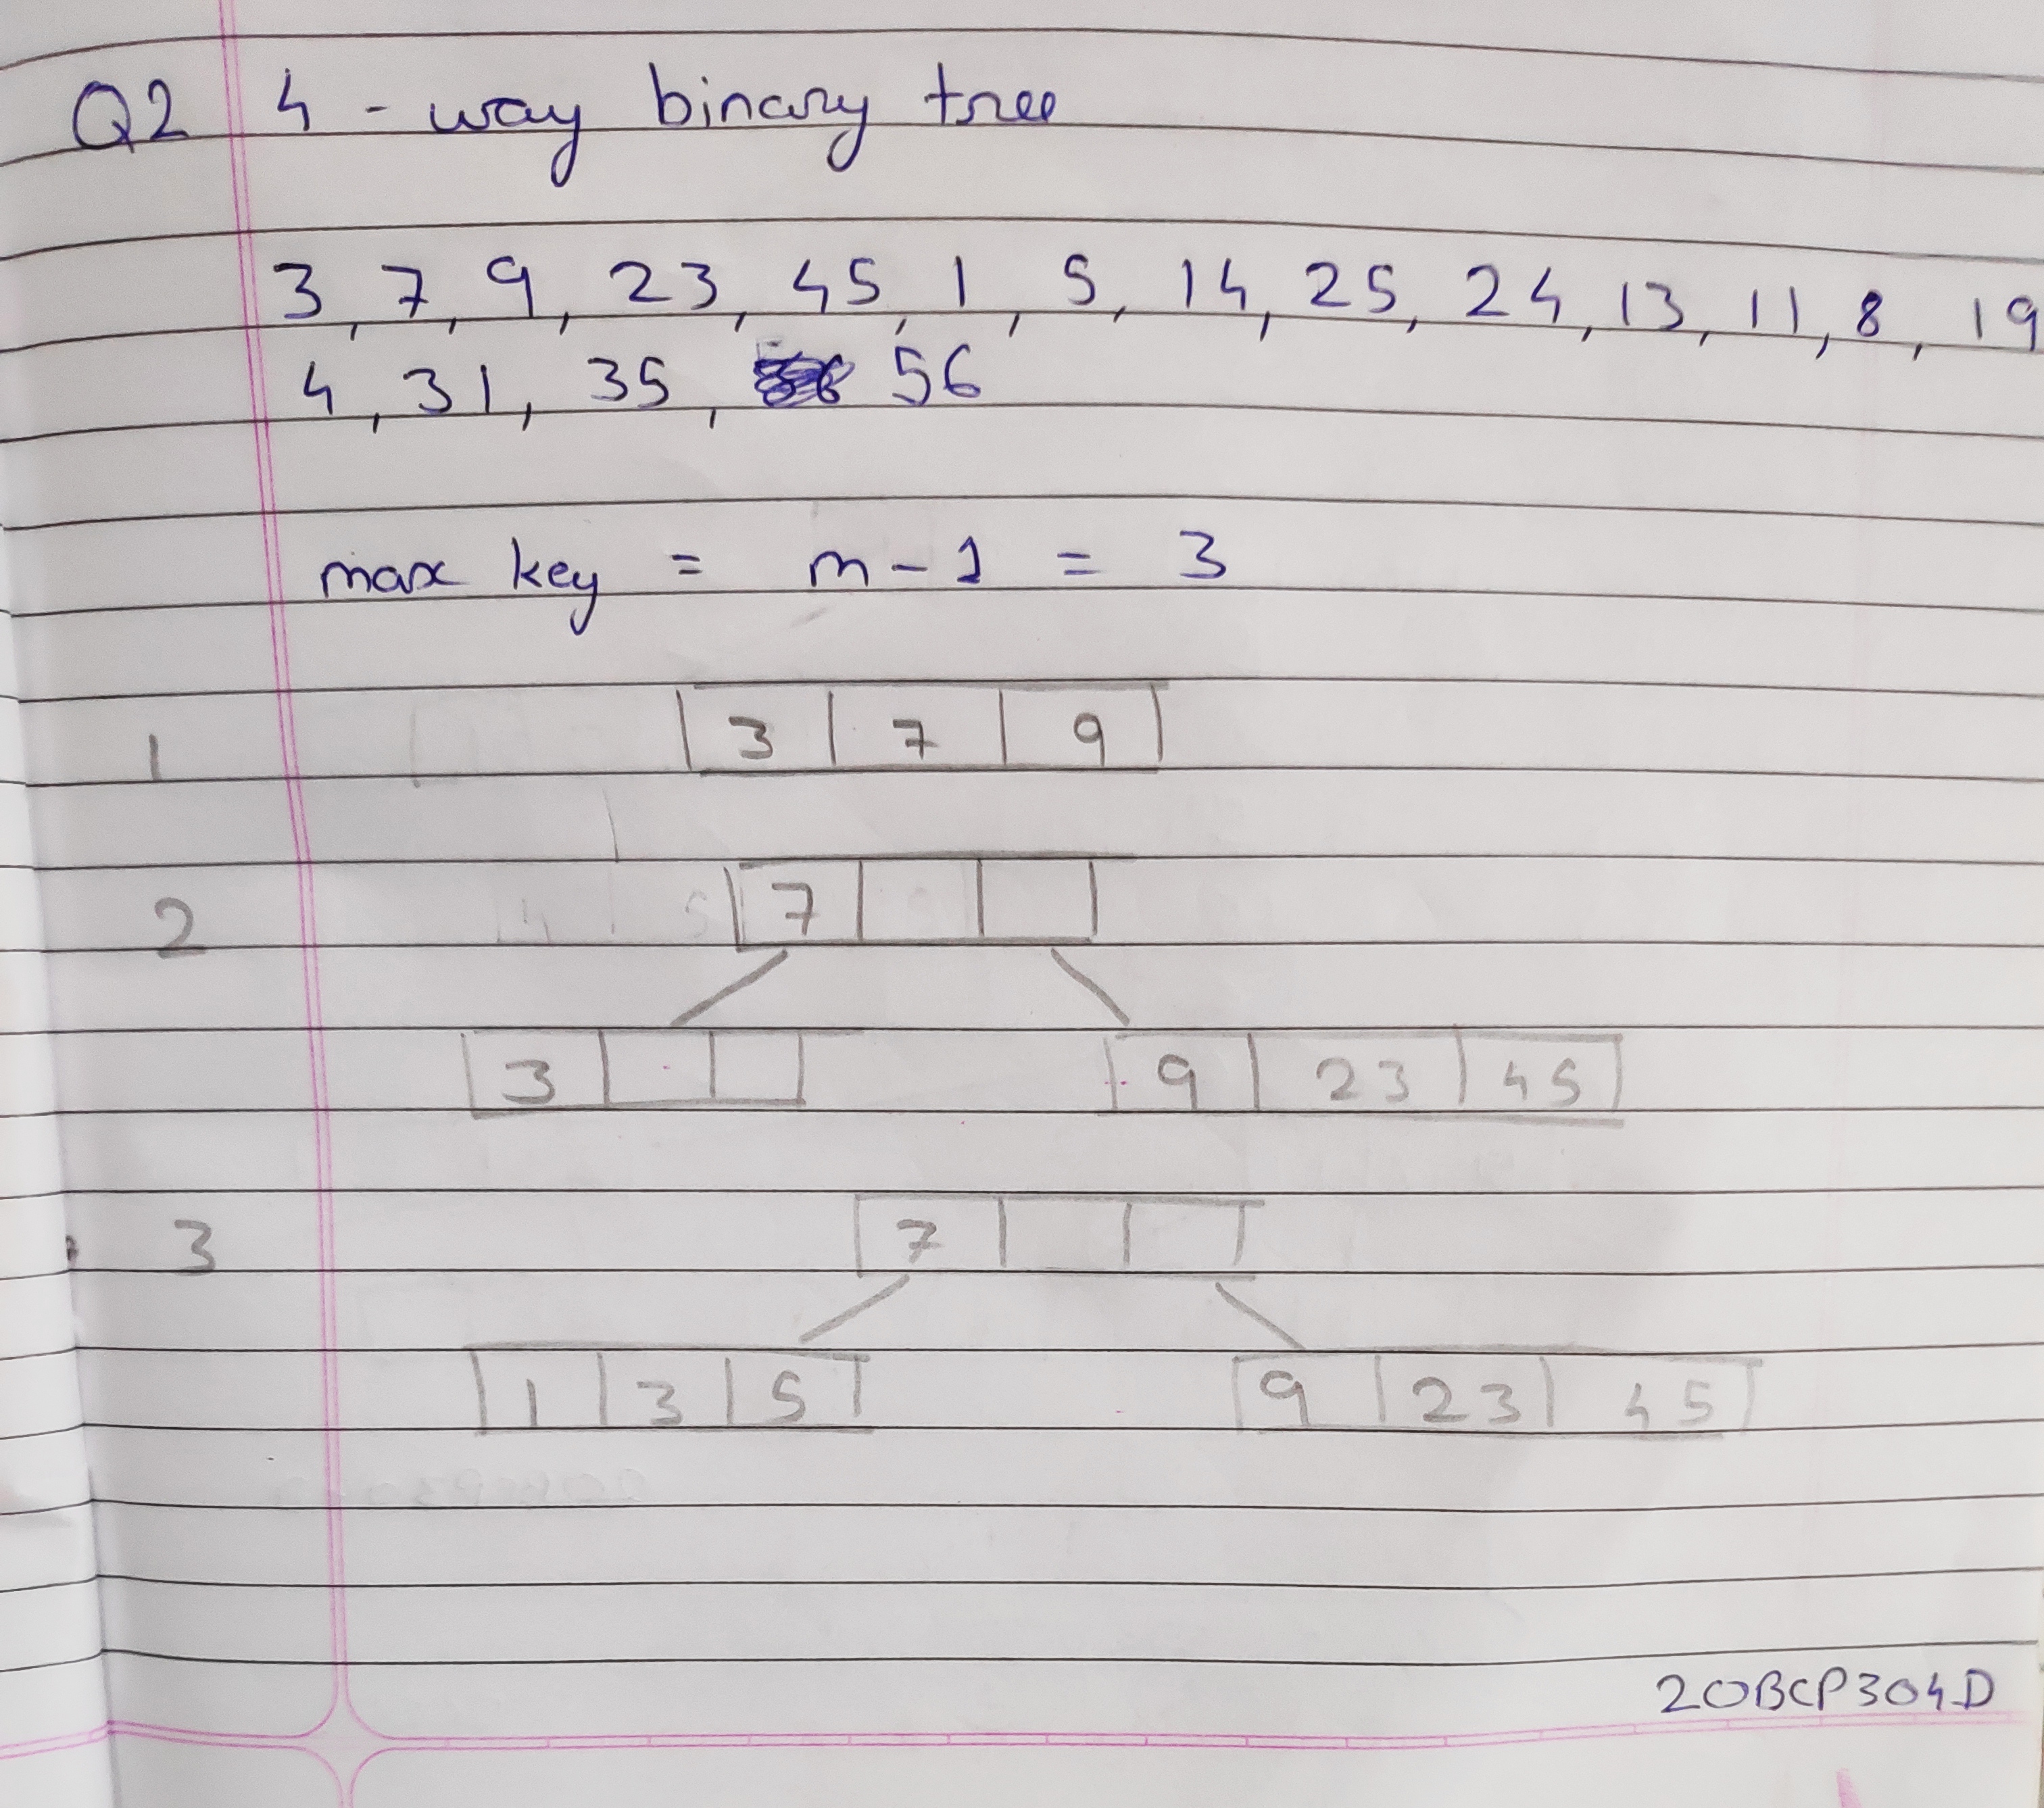 Q2 4 - way binary tree
3, 7, 9, 23, 45, 1, 5, 14, 25, 24, 13, 11, 8, 19
4, 31, 35, 56
max key = m - 1 = 3
1 3 7 9
2 7
3 9 23 45
3 7
1 3 5 9 23 45
20BCP304D